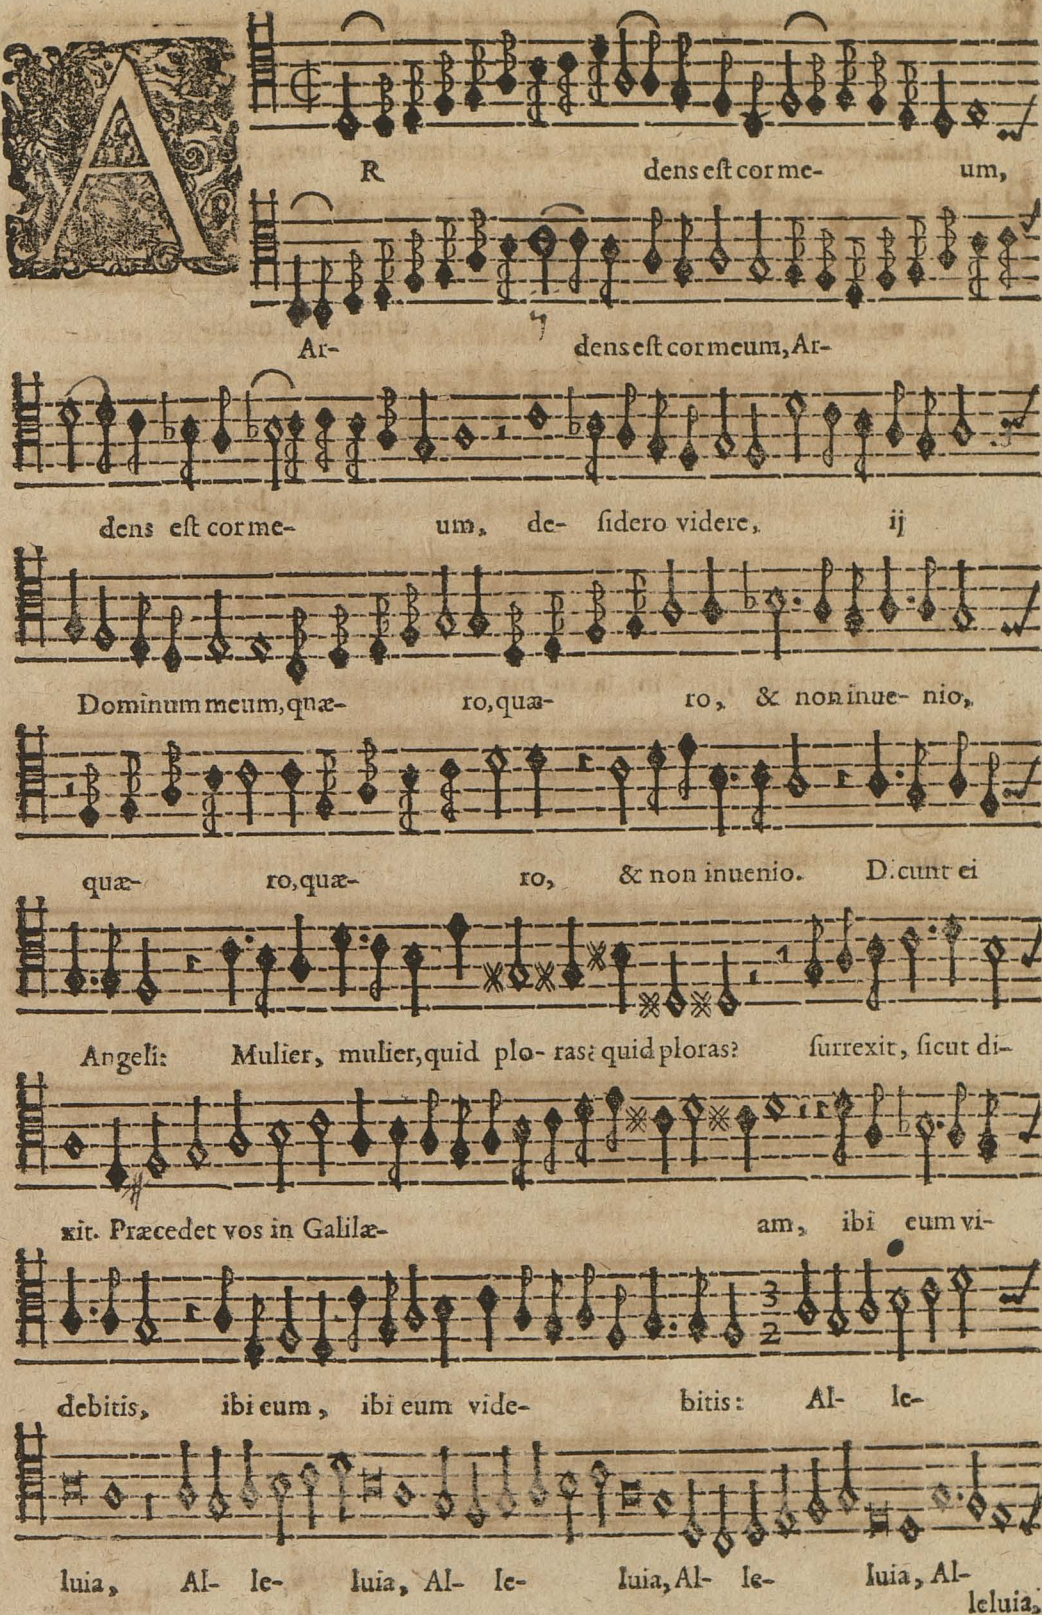 A R dens est cor me- um,
Ar- dens est cor meum, Ar-
dens est cor me- um, de- sidero videre, ij
Dominum meum, quæ- ro, quæ- ro, & non inue- nio,
quæ- ro, quæ- ro, & non inuenio. Dicunt ei
Angeli: Mulier, mulier, quid plo- ras? quid ploras? surrexit, sicut di-
xit. Præcedet vos in Galilæ- am, ibi eum vi-
3
2
debitis, ibi eum, ibi eum vide- bitis: Al- le-
luia, Al- le- luia, Al- le- luia, Al- le- luia, Al-
leluia,